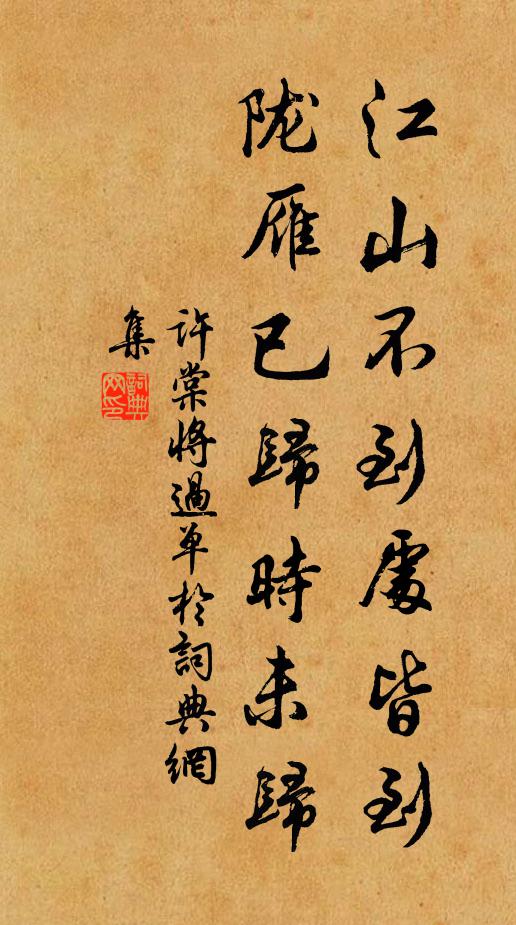 江山不到處皆到
陇雁已歸時未歸
許棠將過单於詞典網
集
詞典
网印